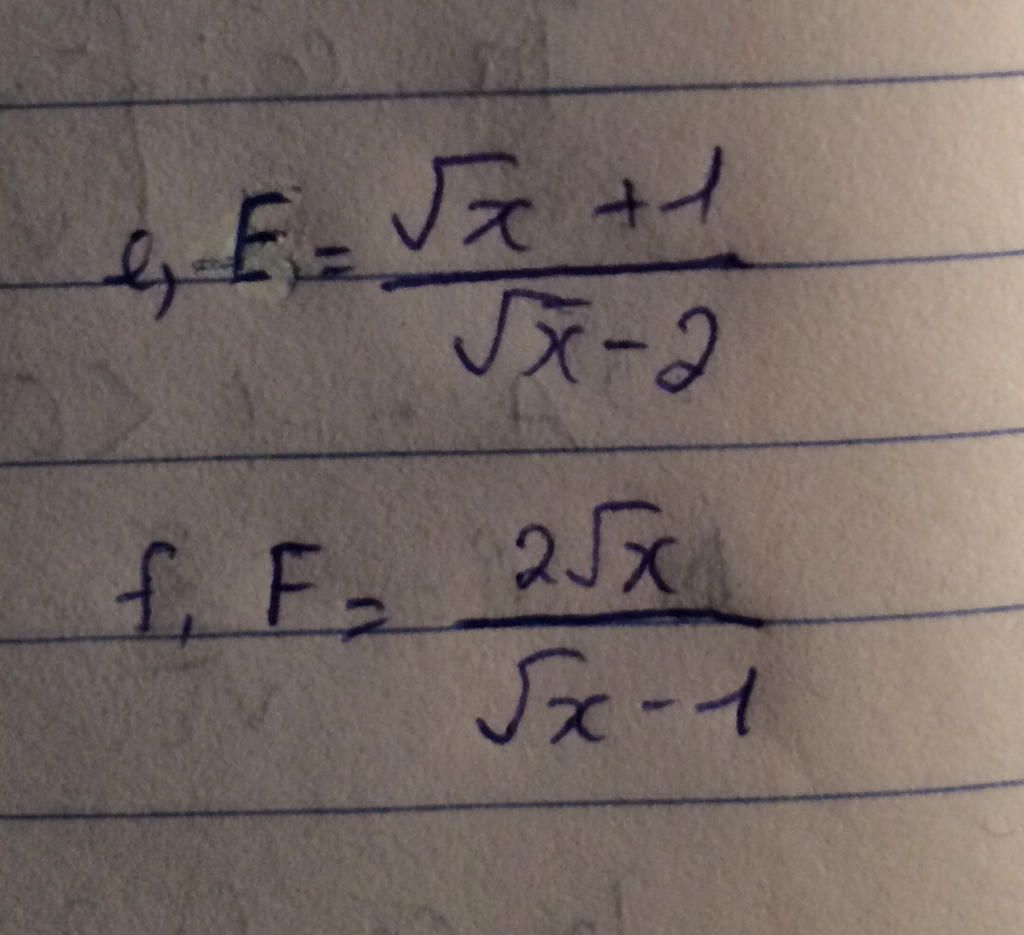 e, E = \frac{\sqrt{x} + 1}{\sqrt{x} - 2}
f, F = \frac{2\sqrt{x}}{\sqrt{x} - 1}